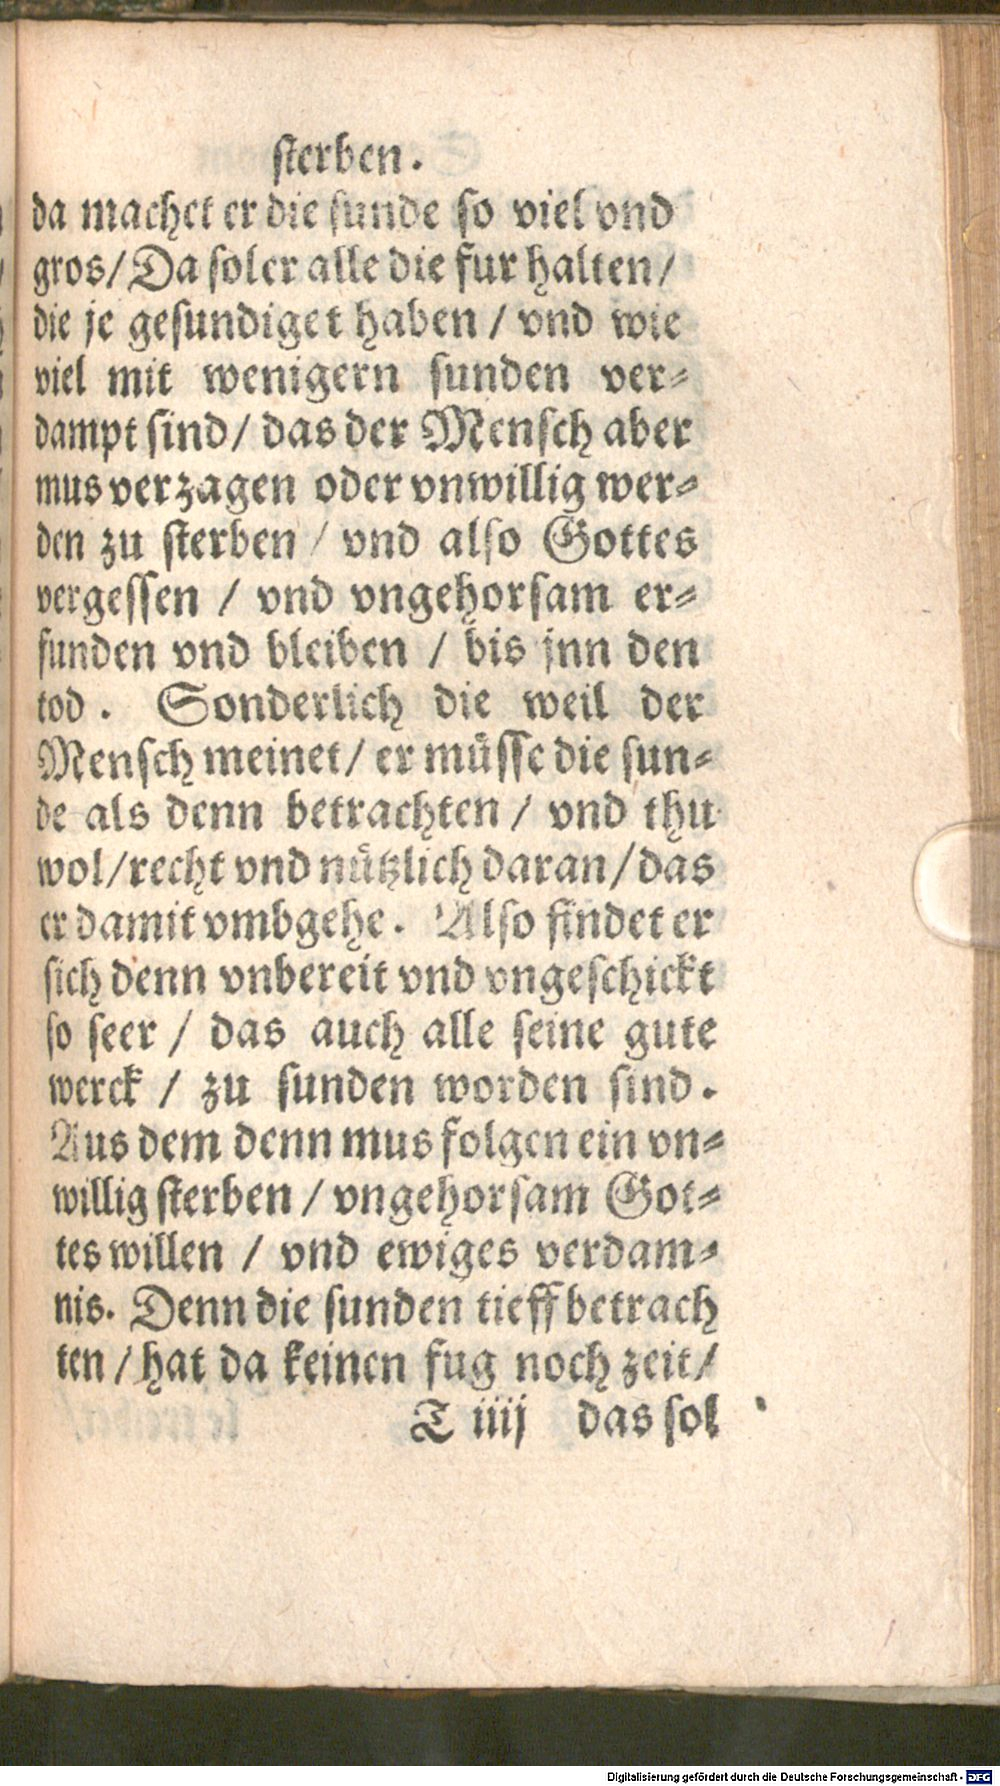 ſterben.
da machet er die ſunde ſo viel vnd
gros/ Da ſol er alle die fur halten/
die je geſundiget haben / vnd wie
viel mit wenigern ſunden ver⸗
dampt ſind/ das der Menſch aber
mus verzagen oder vnwillig wer⸗
den zu ſterben / vnd alſo Gottes
vergeſſen / vnd vngehorſam er⸗
funden vnd bleiben / bis jnn den
tod. Sonderlich die weil der
Menſch meinet/ er müſſe die ſun⸗
de als denn betrachten / vnd thu
wol/recht vnd nützlich daran/das
er damit vmbgehe. Alſo findet er
ſich denn vnbereit vnd vngeſchickt
ſo ſeer / das auch alle ſeine gute
werck / zu ſunden worden ſind.
Aus dem denn mus folgen ein vn⸗
willig ſterben / vngehorſam Got⸗
tes willen / vnd ewiges verdam⸗
nis. Denn die ſunden tieff betrach
ten / hat da keinen fug noch zeit/
T iiij das ſol
Digitalisierung gefördert durch die Deutsche Forschungsgemeinschaft - DFG